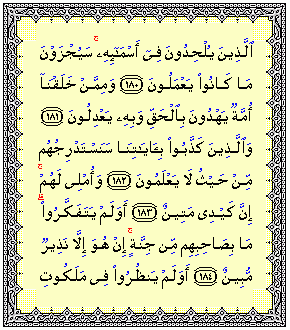 ٱلَّذِينَ يُلْحِدُونَ فِىٓ أَسْمَـٰٓئِهِۦ ۚ سَيُجْزَوْنَ
مَا كَانُوا۟ يَعْمَلُونَ ﴿١٨٠﴾ وَمِمَّنْ خَلَقْنَآ
أُمَّةٌ يَهْدُونَ بِٱلْحَقِّ وَبِهِۦ يَعْدِلُونَ ﴿١٨١﴾
وَٱلَّذِينَ كَذَّبُوا۟ بِـَٔايَـٰتِنَا سَنَسْتَدْرِجُهُم
مِّنْ حَيْثُ لَا يَعْلَمُونَ ﴿١٨٢﴾ وَأُمْلِى لَهُمْ ۚ
إِنَّ كَيْدِى مَتِينٌ ﴿١٨٣﴾ أَوَلَمْ يَتَفَكَّرُوا۟ ۗ
مَا بِصَاحِبِهِم مِّن جِنَّةٍ ۚ إِنْ هُوَ إِلَّا نَذِيرٌ
مُّبِينٌ ﴿١٨٤﴾ أَوَلَمْ يَنظُرُوا۟ فِى مَلَكُوتِ